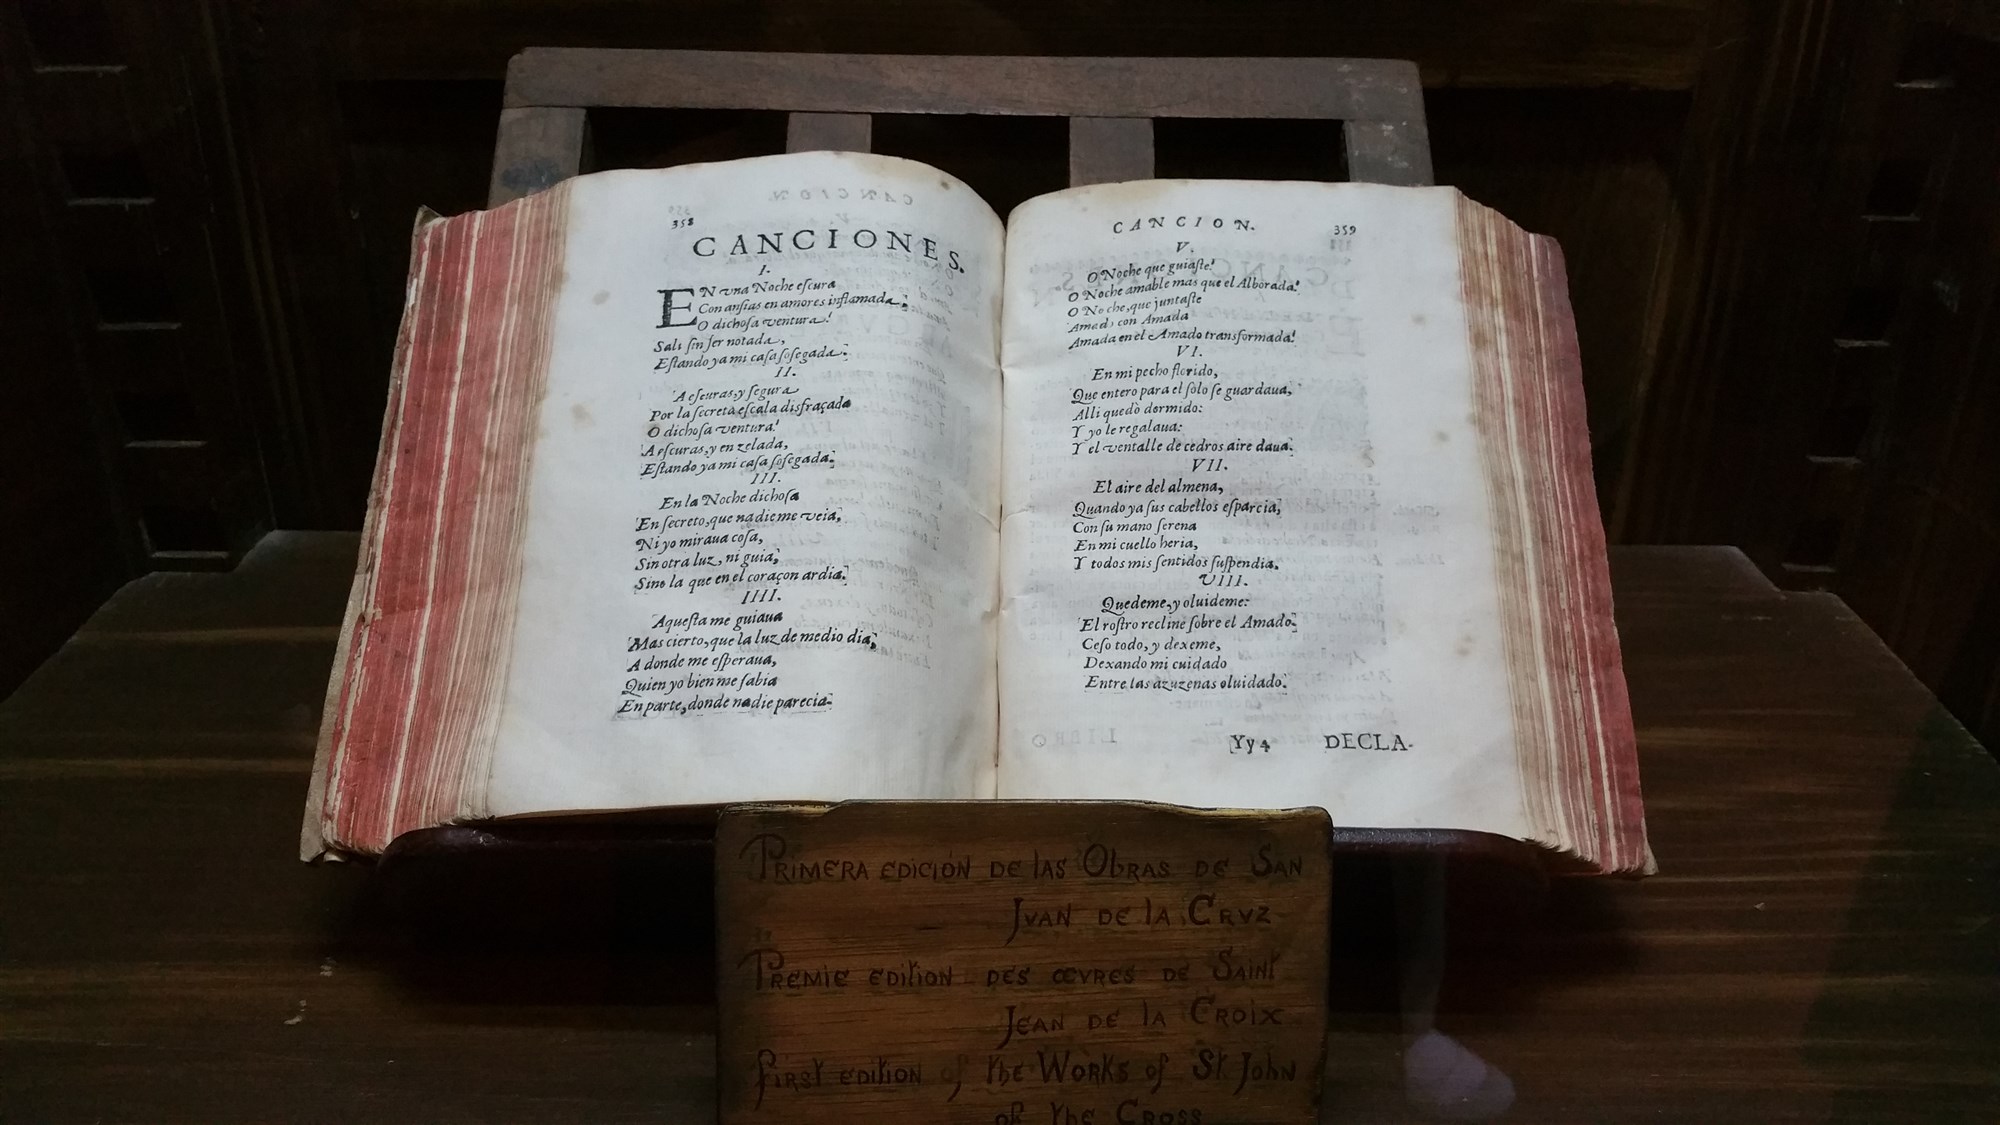 358
CANCIONES.
I.
EN vna Noche eſcura
Con anſias en amores inflamada,
O dichoſa ventura!
Sali ſin ſer notada,
Eſtando ya mi caſa ſoſegada.
II.
A eſcuras, y ſegura
Por la ſecreta eſcala disfraçada
O dichoſa ventura!
A eſcuras, y en zelada,
Eſtando ya mi caſa ſoſegada.
III.
En la Noche dichoſa
En ſecreto, que nadie me veia,
Ni yo miraua coſa,
Sin otra luz, ni guia,
Sino la que en el coraçon ardia.
IIII.
Aqueſta me guiaua
Mas cierto, que la luz de medio dia,
A donde me eſperaua,
Quien yo bien me ſabia
En parte, donde nadie parecia.
CANCION. 359
V.
O Noche que guiaſte!
O Noche amable mas que el Alborada!
O Noche, que juntaſte
Amado con Amada
Amada en el Amado transformada!
VI.
En mi pecho florido,
Que entero para el ſolo ſe guardaua,
Alli quedò dormido:
Y yo le regalaua:
Y el ventalle de cedros aire daua.
VII.
El aire del almena,
Quando ya ſus cabellos eſparcia,
Con ſu mano ſerena
En mi cuello heria,
Y todos mis ſentidos ſuſpendia.
VIII.
Quedeme, y oluideme:
El roſtro recline ſobre el Amado.
Ceſo todo, y dexeme,
Dexando mi cuidado
Entre las azuzenas oluidado.
Yy 4 DECLA-
Primera edición de las Obras de San
Jvan de la Crvz
Premie edition des œvres de Saint
Jean de la Croix
First edition of the Works of St. John
of the Cross